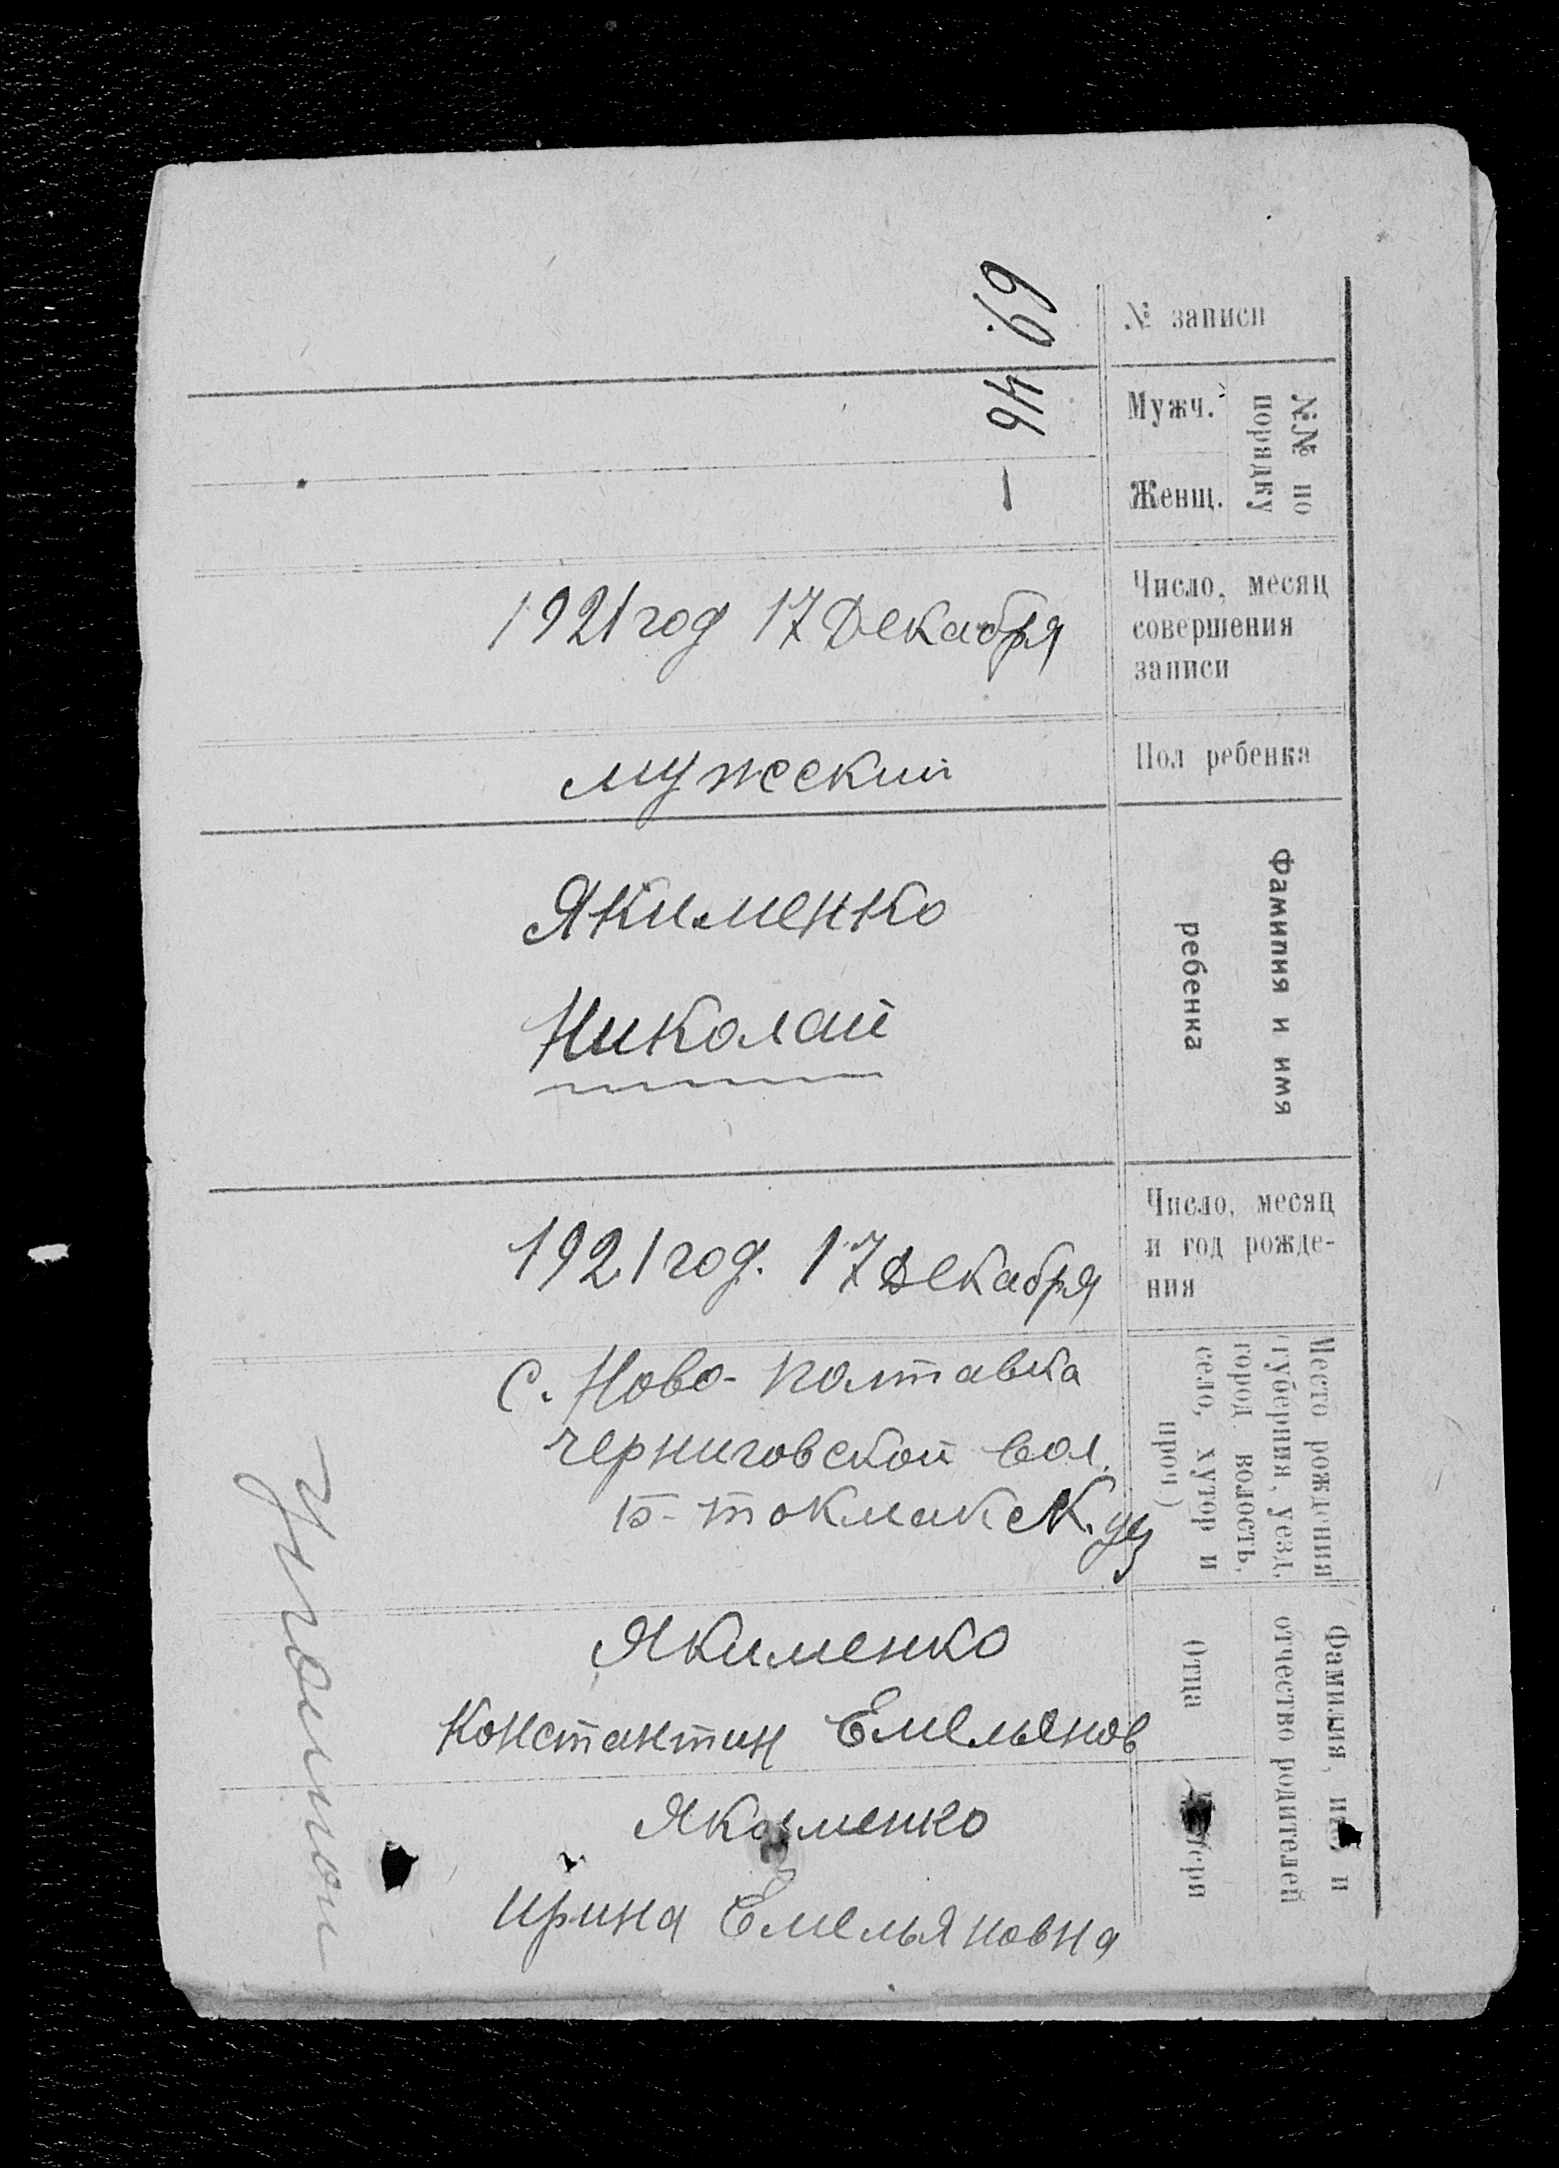 № записи
69.
№№ по
порядку
Мужч.
46
Женщ.
—
Число, месяц
совершения
записи
1921 год 17 Декабря
Пол ребенка
мужеский
Фамилия и имя
ребенка
Якименко
Николай
Число, месяц
и год рожде-
ния
1921 год. 17 Декабря
Место рождения
(губерния, уезд,
город волость,
село, хутор и
проч)
с. Ново-Полтавка
Черниговской вол.
Б-Токмакск. уез
Фамилия, имя и
отчество родителей
Отца
Якименко
Константин Емельянов
Матери
Якименко
Ирина Емельяновна